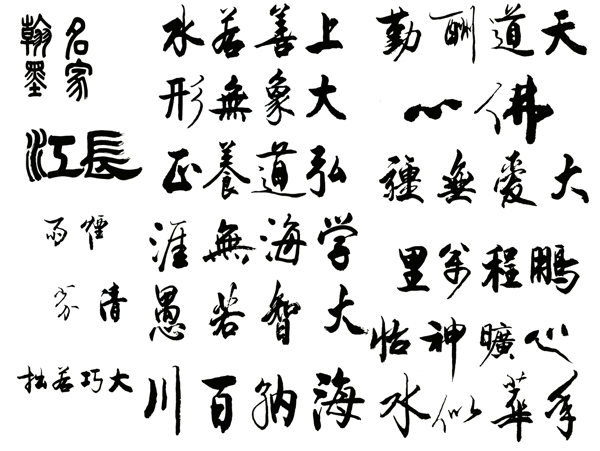 天道酬勤
佛心
大愛無疆
鵬程萬里
心曠神怡
年華似水
上善若水
大象無形
弘道養正
学海無涯
大智若愚
海納百川
名家
翰墨
長江
煙雨
清芬
大巧若拙